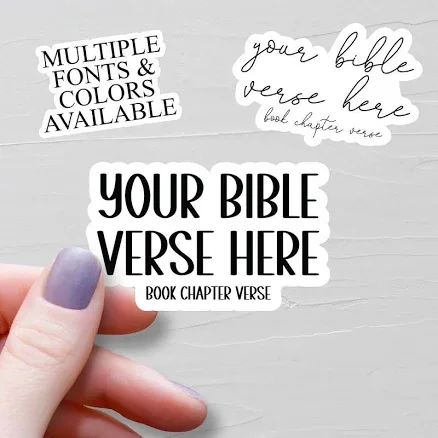 MULTIPLE
FONTS &
COLORS
AVAILABLE
your bible
verse here
book chapter verse
YOUR BIBLE
VERSE HERE
BOOK CHAPTER VERSE